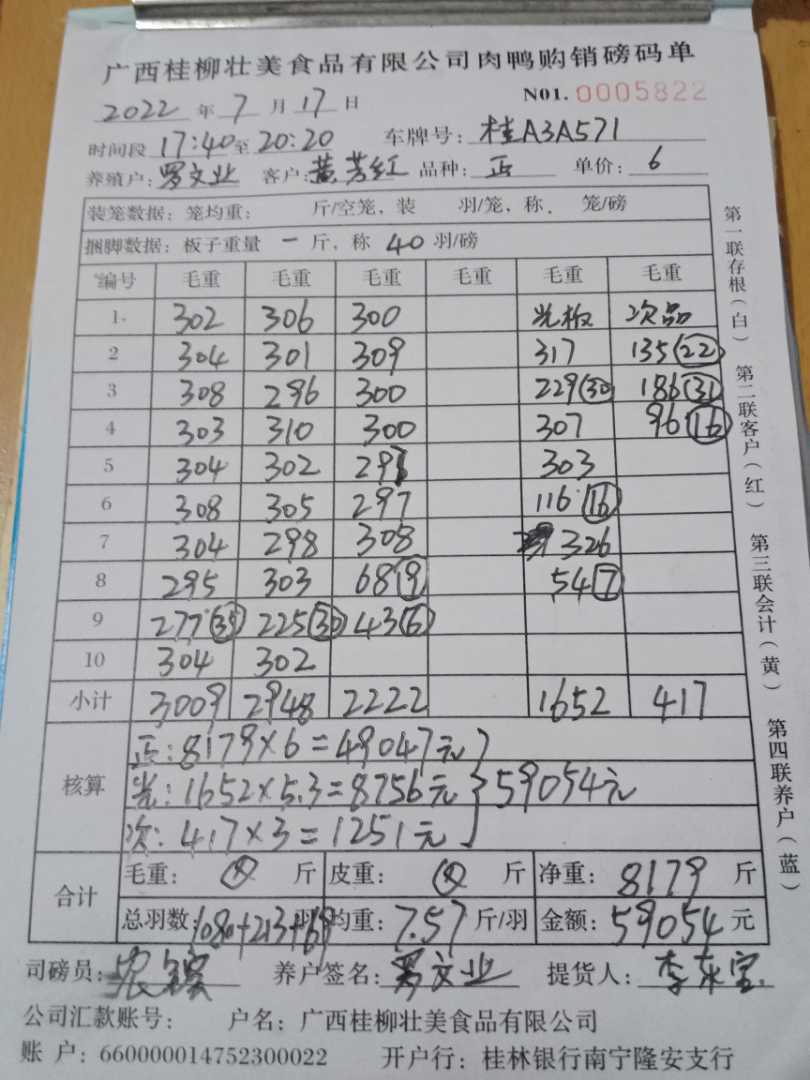 广西桂柳壮美食品有限公司肉鸭购销磅码单
2022 年 7 月 17 日 N01. 0005822
时间段 17:40 至 20:20 车牌号: 桂A3A571
养殖户: 罗文业 客户: 黄芳红 品种: 正 单价: 6
装笼数据: 笼均重: 斤/空笼, 装 羽/笼, 称. 笼/磅
捆脚数据: 板子重量 一 斤, 称 40 羽/磅
编号 毛重 毛重 毛重 毛重 毛重 毛重
1 302 306 300 光板 次品
2 304 301 309 317 135(22)
3 308 296 300 229(30) 186(31)
4 303 310 300 307 96(16)
5 304 302 303
6 308 305 297 116(16)
7 304 298 308 326
8 295 303 68(9) 54(7)
9 277(35) 225(30) 43(6)
10 304 302
小计 3009 2948 2222 1652 417
核算
正: 8179×6=49047元
光: 1652×5.3=8756元 } 59054元
次: 417×3=1251元
合计
毛重: 斤 皮重: 斤 净重: 8179 斤
总羽数: 1080+213+69 羽 均重: 7.57 斤/羽 金额: 59054 元
司磅员: 养户签名: 罗文业 提货人: 李东宝
公司汇款账号: 户名: 广西桂柳壮美食品有限公司
账 户: 660000014752300022 开户行: 桂林银行南宁隆安支行
第一联存根(白) 第二联客户(红) 第三联会计(黄) 第四联养户(蓝)